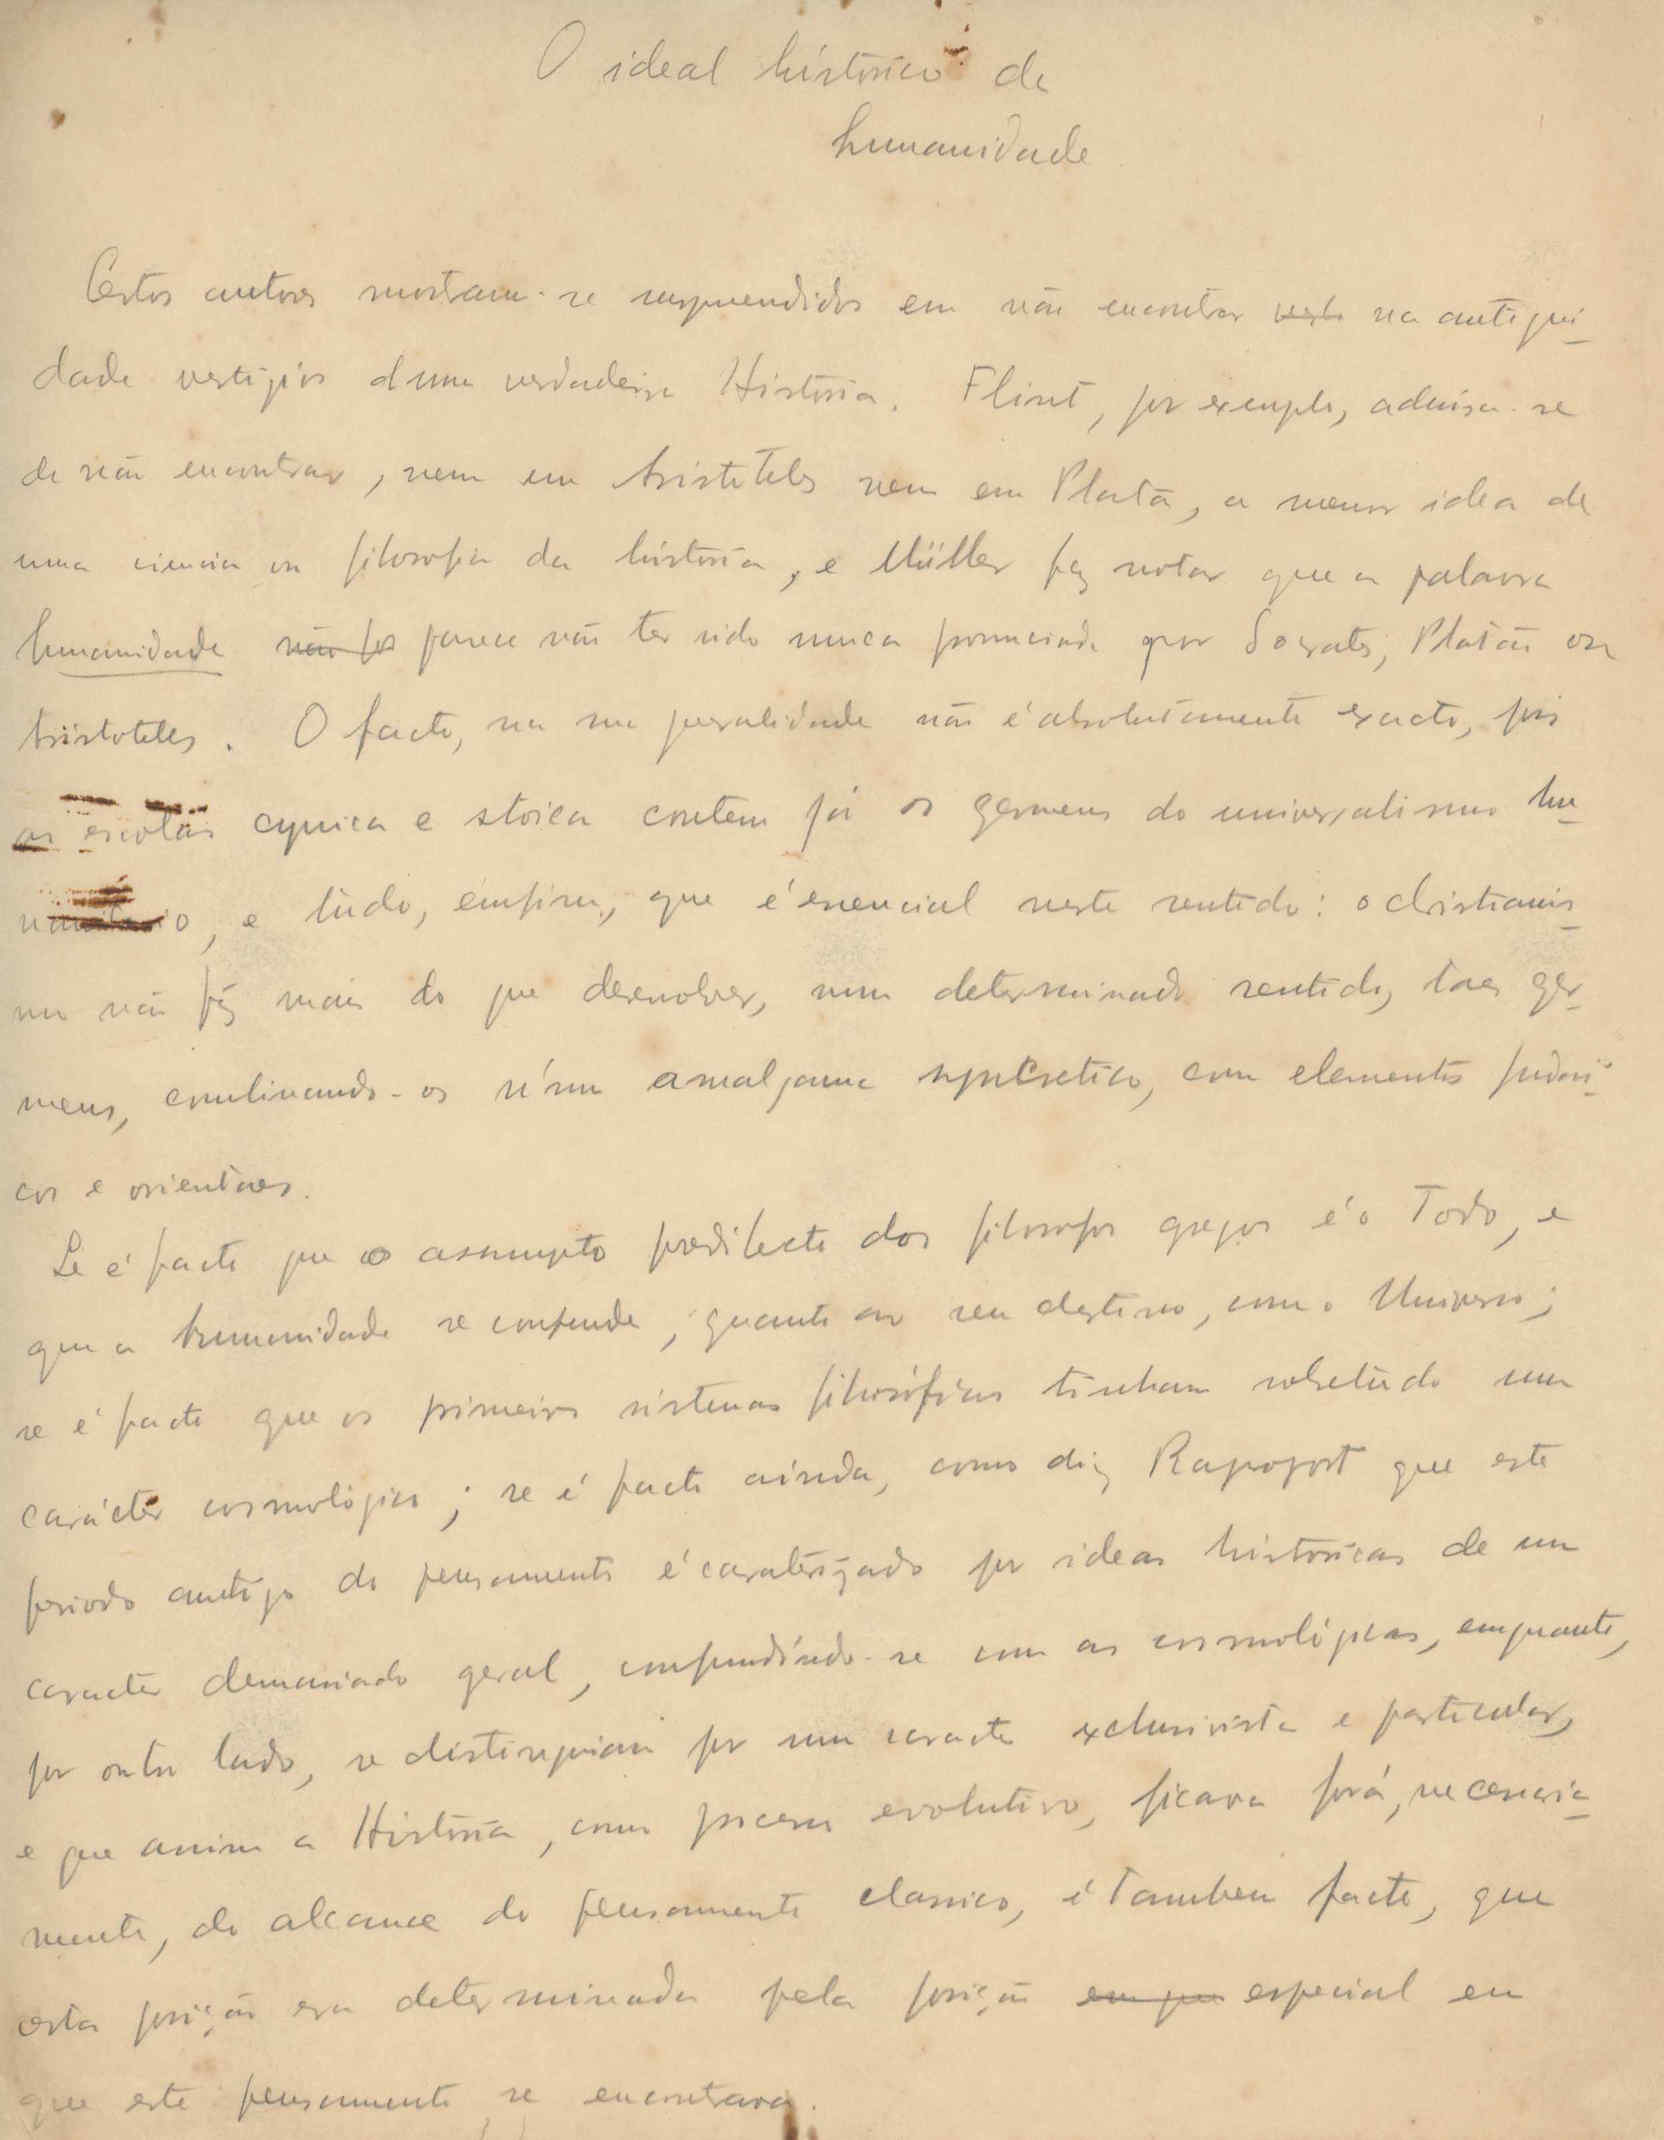 O ideal histórico de
humanidade
Certos autores mostram-se surprendidos em não encontrar vesti na antigui-
dade vestigios duma verdadeira História. Flint, por exemplo, admira-se
de não encontrar, nem em Aristoteles nem em Platão, a menor idea de
uma ciencia ou filosofia da história, e Müller faz notar que a palavra
humanidade não foi parece não ter sido nunca pronunciada por Socrates, Platão ou
Aristoteles. O facto, na sua generalidade não é absolutamente exacto, pois
as escolas cynica e stoica contem já os germens do universalismo hu-
manitario, e tudo, emfim, que é esencial neste sentido: o christianis-
mo não fez mais do que desenvolver, num determinado sentido, taes ger-
mens, combinando-os n'um amalgama syncretico, com elementos judai-
cos e orientaes.
Se é facto que o assumpto predilecto dos filosofos gregos é o Todo, e
que a humanidade se confunde, quanto ao seu destino, com o Universo;
se é facto que os primeiros sistemas filosóficos tinham sobretudo um
carácter cosmológico; se é facto ainda, como diz Rapoport que este
periodo antigo do pensamento é caraterizado por ideas históricas de um
caracter demasiado geral, confundindo-se com as cosmológicas, emquanto,
por outro lado, se distinguiam por um caracter exclusivista e particular,
e que assim a História, como processo evolutivo, ficava fora, necessaria-
mente, do alcance do pensamento classico, é tambem facto, que
esta posição era determinada pela posição em que especial em
que este pensamento se encontrava.